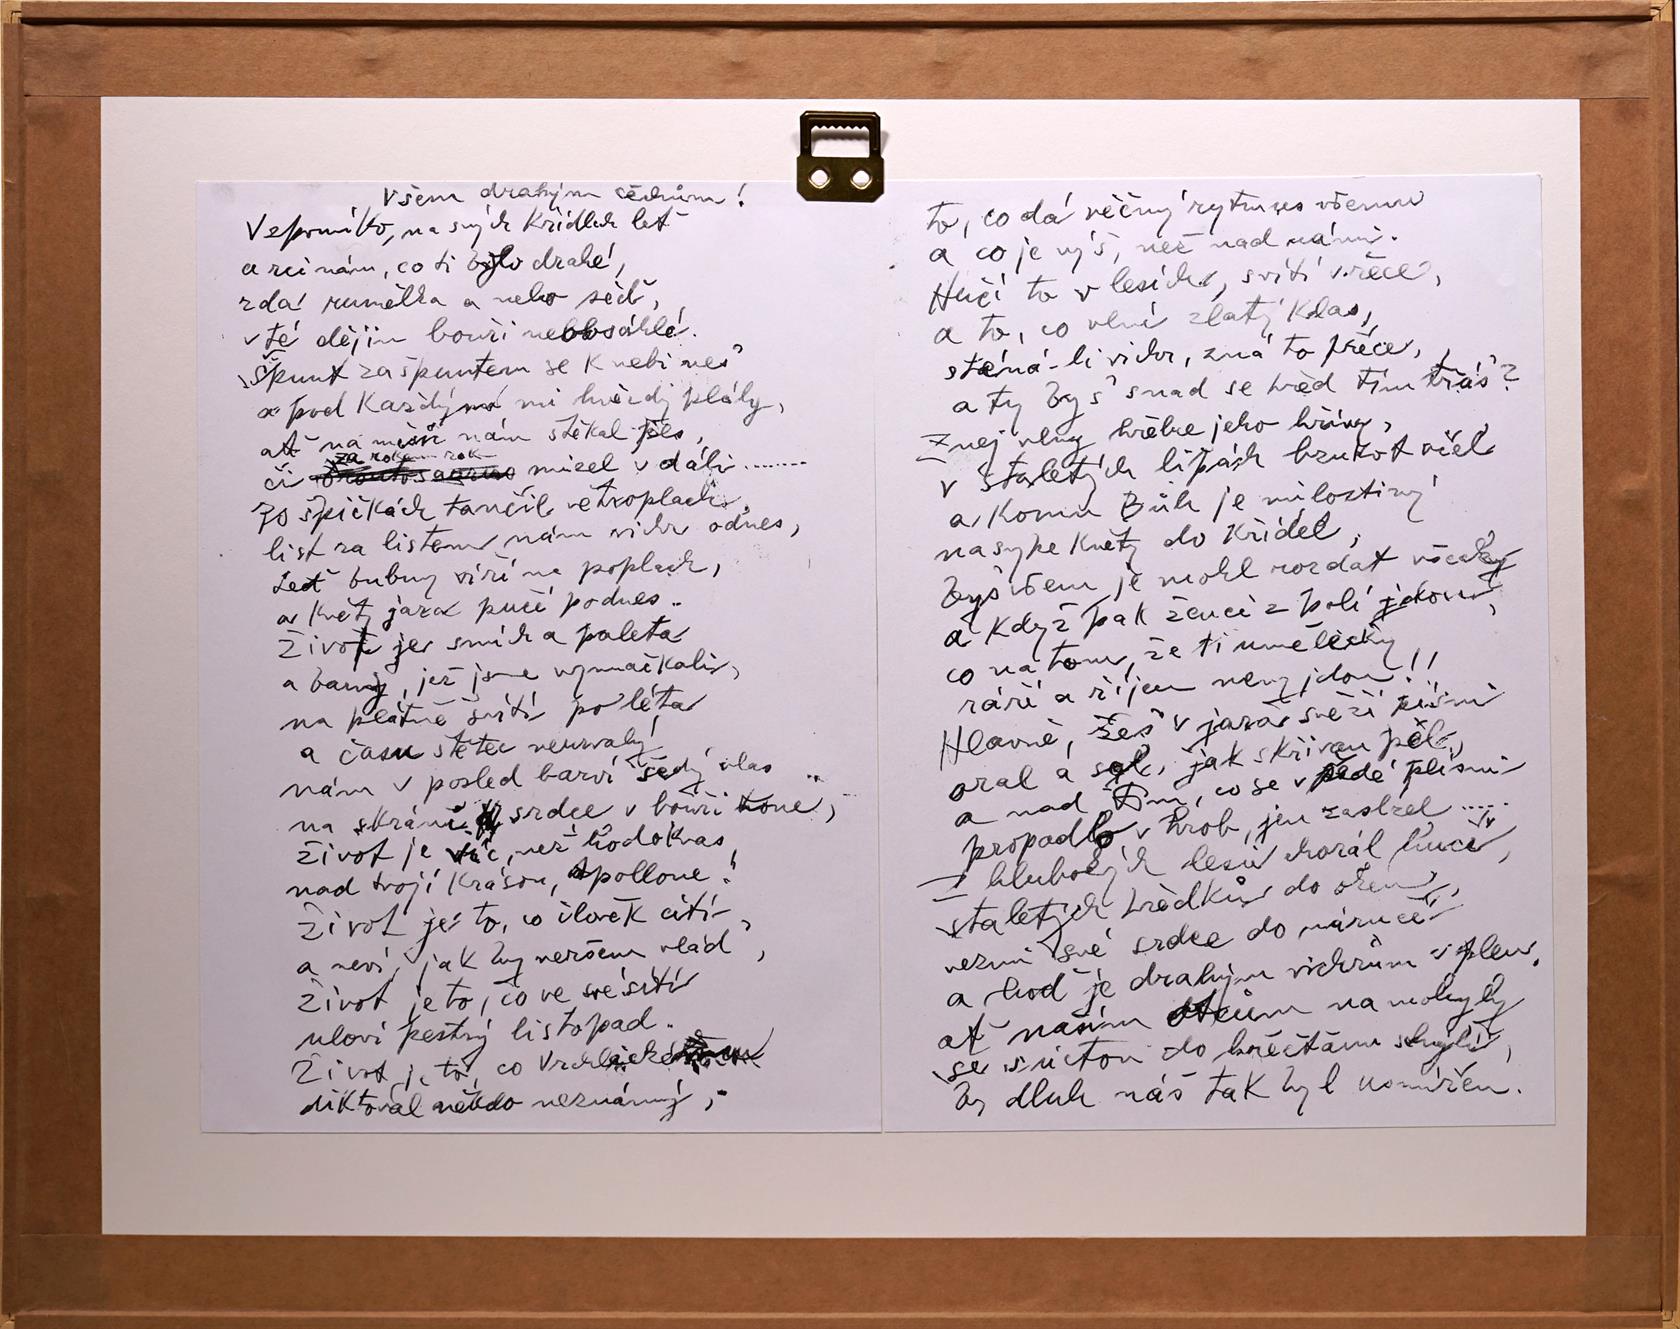 Všem drahým
Vzpomínko, na svých křídlech leť
a rci nám, co ti bylo drahé,
zdá rumělka a nebo šeď,
v té dějin bouři neobsáhlé.
Špunt za špuntem se k nebi nes'
a pod každým mi hvězdy plály,
ať na měsíc nám štěkal pes,
či za rokem rok mizel v dáli........
Po špičkách tančil větroplach,
list za listem nám vichr odnes,
teď bubny víří na poplach,
a květy jara pučí podnes..
Život je smích a paleta
a barvy, jež jsme vymačkali,
na plátně svítí po léta
a času štětec neurvalý
nám v posled barví šedý vlas
na skráni, srdce v bouři
život je víc, než hodokvas
nad tvojí krásou, Apollone!
Život je to, co člověk cítí
a neví, jak by veršem vlád',
Život je to, co ve své síti
uloví pestrý listopad.
Život je to, co
diktoval někdo neznámý,
to, co dá věčný rytmus všemu
a co je výš, než nad námi.
Hučí to v lesích, svítí v řece,
a to, co vlní zlatý klas,
sténá-li vichr, zná to přece,
a ty bys' snad se hřed tím třás'?
Znej vlny hřebce jeho hřívy,
v staletých lipách bzukot včel
a komu Bůh je milostivý
nasype květy do křídel,
bys všem je mohl rozdat všecky
a když pak ženci z polí jdou,
co na tom, že ti umělecky
září a říjen nevyjdou!!
Hlavně, žes' v jara svěží písni
oral a sel, jak skřivan pěl,
a nad tím, co se v šedé plísni
propadlo v hrob, jen zaslzel.....
Z hlubokých lesů chorál hučí,
staletých
vezmi své srdce do náručí
a hoď je drahým vichrům v plen,
ať našim otcům na mohyly
se s úctou do břečťanu schýlí,
by dluh náš tak byl usmířen.